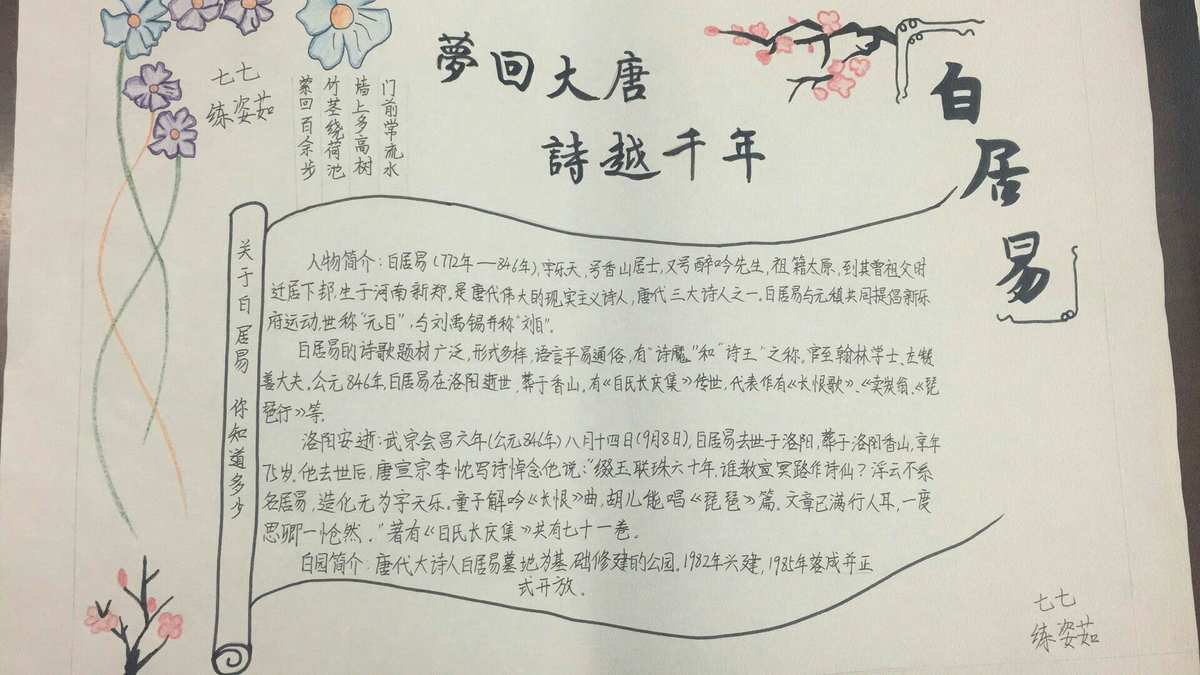 夢回大唐
詩越千年
白居易
七七
练姿茹
门前常流水
墙上多高树
竹茎绕荷池
萦回百余步
关于白居易 你知道多少
人物简介:白居易(772年—846年),字乐天,号香山居士,又号醉吟先生,祖籍太原,到其曾祖父时
迁居下邽,生于河南新郑。是唐代伟大的现实主义诗人,唐代三大诗人之一。白居易与元稹共同提倡新乐
府运动,世称“元白”,与刘禹锡并称“刘白”。
白居易的诗歌题材广泛,形式多样,语言平易通俗,有“诗魔”和“诗王”之称。官至翰林学士、左赞
善大夫。公元846年,白居易在洛阳逝世,葬于香山。有《白氏长庆集》传世,代表作有《长恨歌》、《卖炭翁》、《琵
琶行》等。
洛阳安逝:武宗会昌六年(公元846年)八月十四日(9月8日),白居易去世于洛阳,葬于洛阳香山,享年
75岁。他去世后,唐宣宗李忱写诗悼念他说:“缀玉联珠六十年,谁教宣冥路作诗仙?浮云不系
名居易,造化无为字天乐。童子解吟《长恨》曲,胡儿能唱《琵琶》篇。文章已满行人耳,一度
思卿一怆然。”著有《白氏长庆集》共有七十一卷。
白园简介:唐代大诗人白居易墓地为基础修建的公园。1982年兴建,1985年落成并正
式开放.
七七
练姿茹